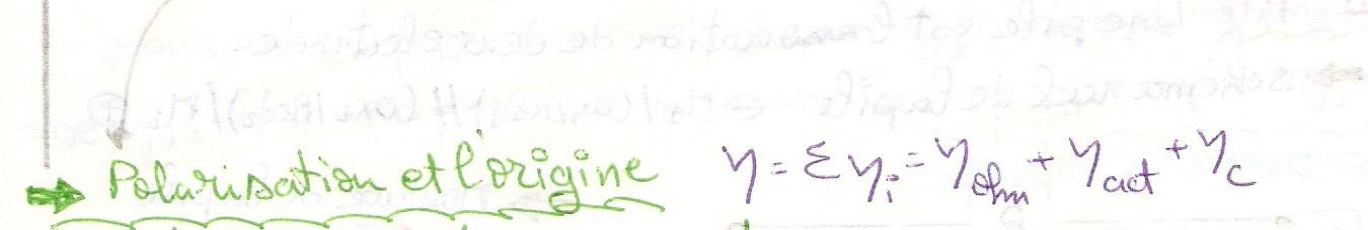 Polarisation et l'origine η = Σ η_i = η_ohm + η_act + η_c